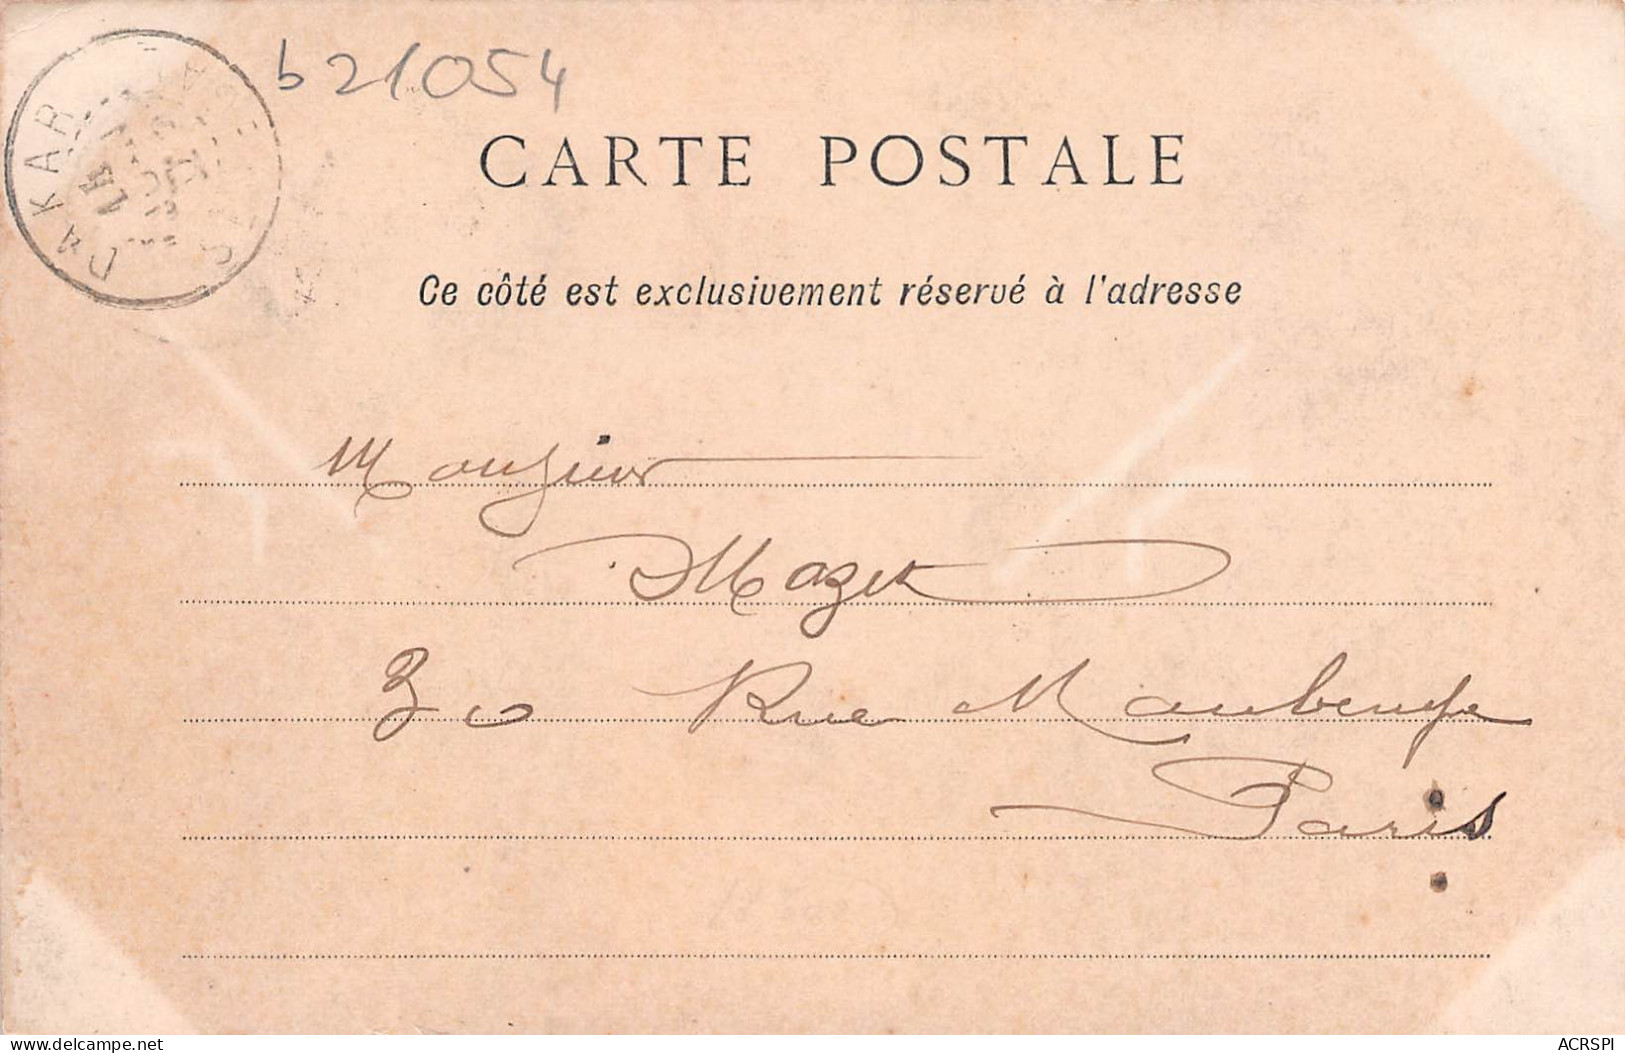 b21054
DAKAR
CARTE POSTALE
Ce côté est exclusivement réservé à l'adresse
Monsieur
Mazet
30 Rue Maubeuge
Paris
delcampe.net
ACRSPI